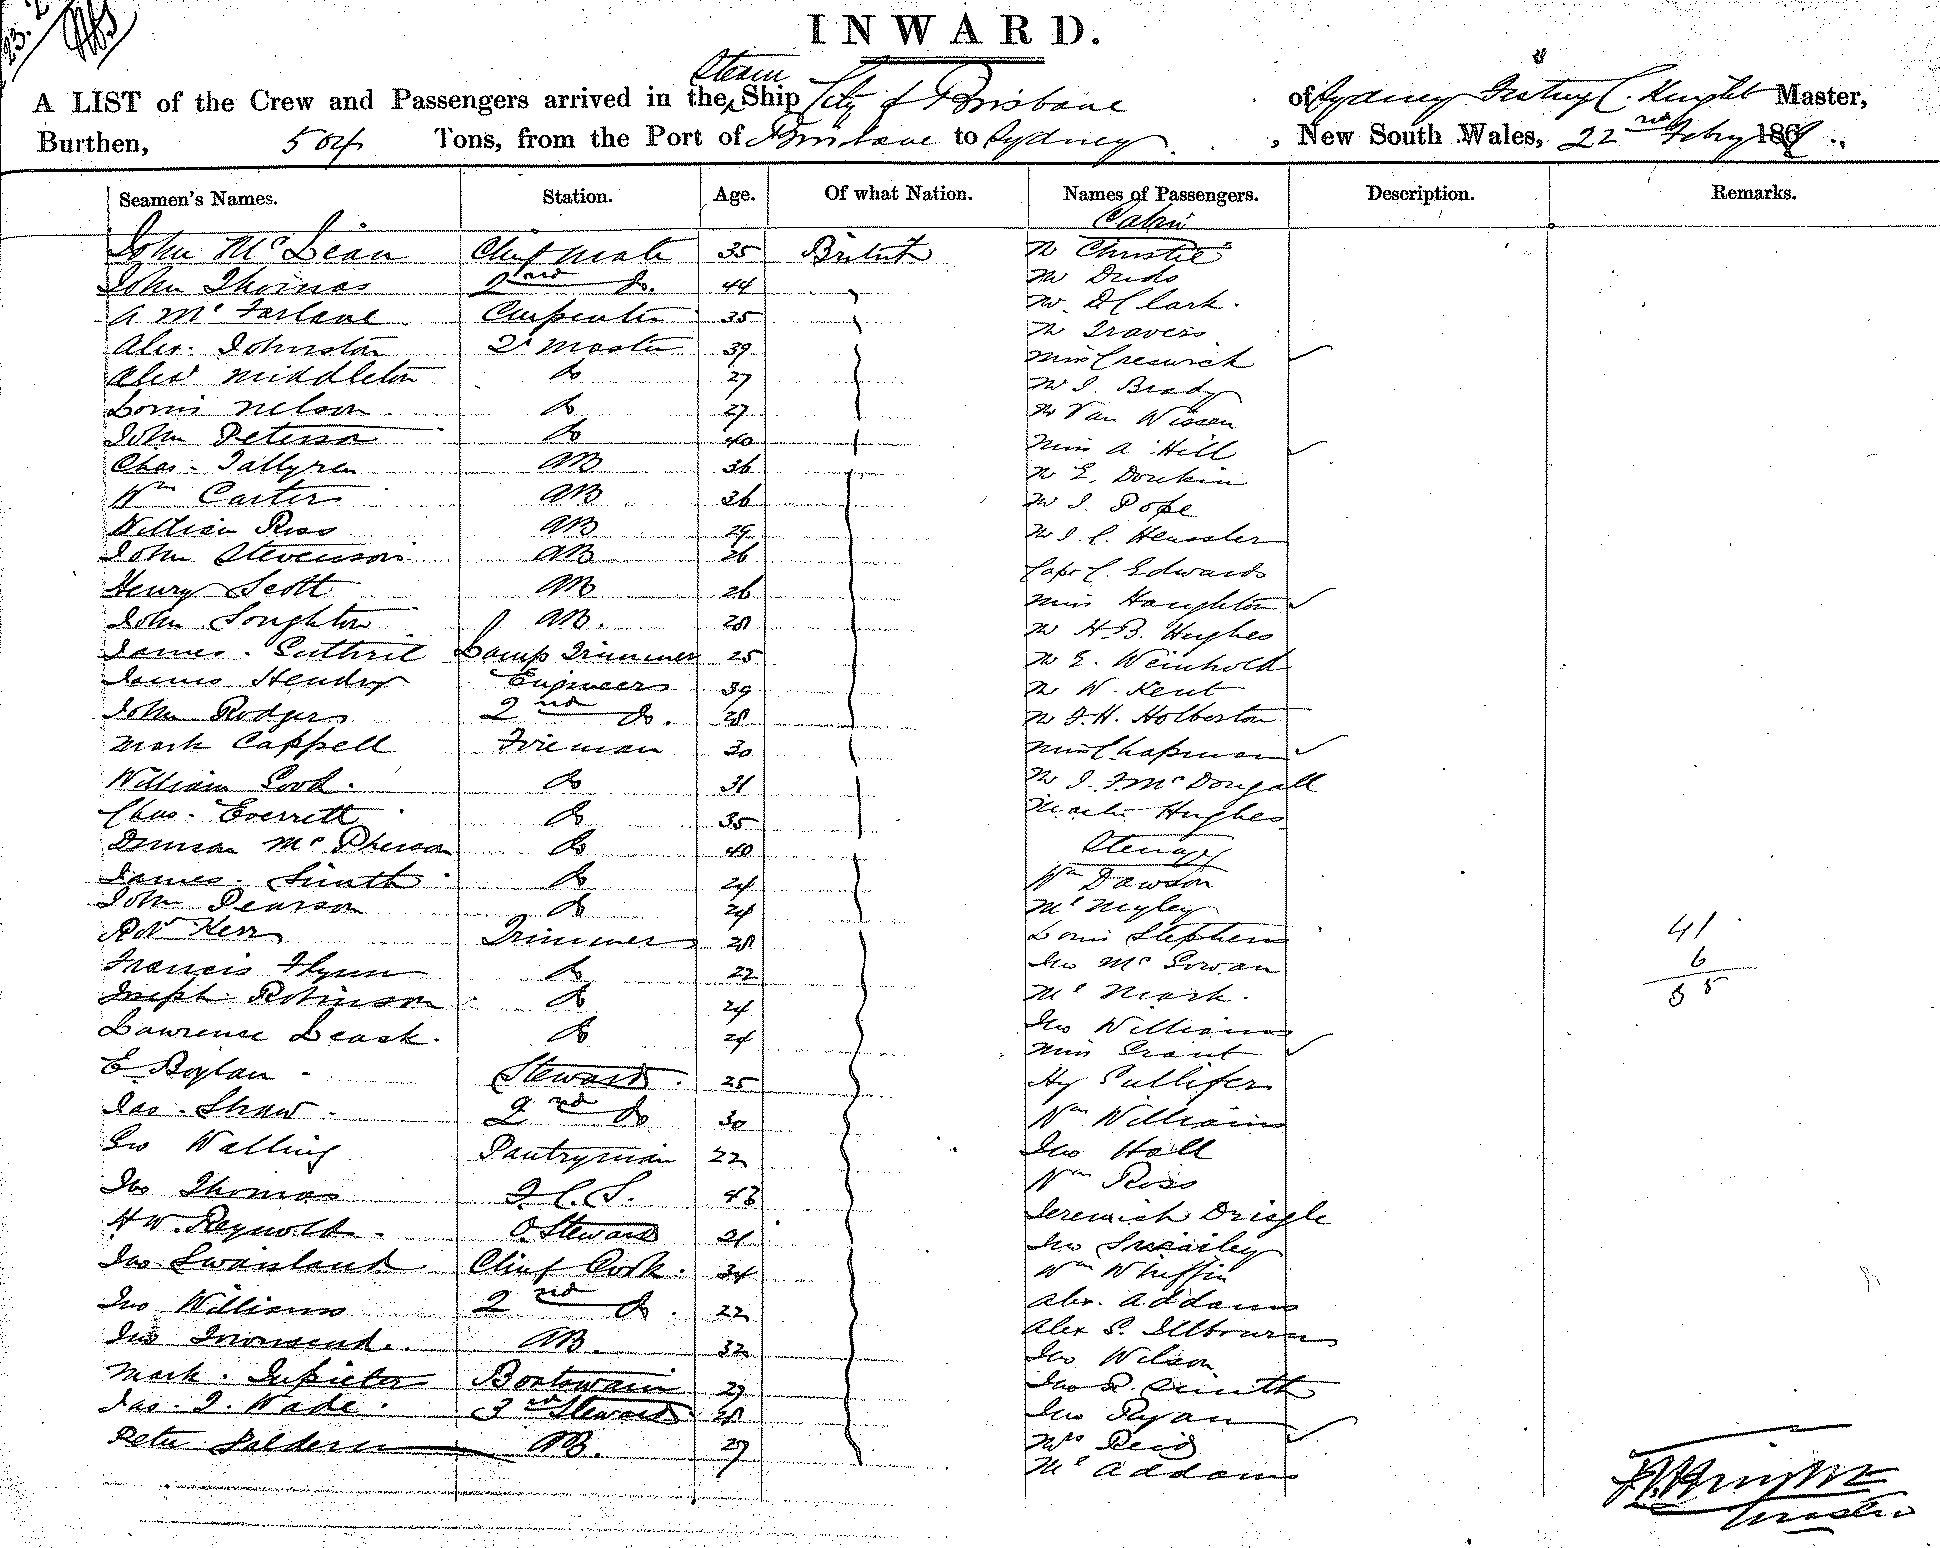 INWARD.
A LIST of the Crew and Passengers arrived in the Steam Ship City of Brisbane of Sydney C. Knight Master,
Burthen, 504 Tons, from the Port of Brisbane to Sydney, New South Wales, 22nd Feby 186
Seamen's Names. Station. Age. Of what Nation. Names of Passengers. Description. Remarks.
Cabin
John McLean Chief Mate 35 British Mr Christie
John Thomas 2nd Do. 44 Mr
A McFarlane Carpenter 35 Mr. D Clark.
Alex. Johnston Qr Master 39 Mr Travers
Alexr Middleton Do 27 Miss Creswick
Louis Nelson Do 27 Mr J. Brady
John Peterson Do 40 Mr Van Wissen
Chas. Tallyren AB 36 Miss A Hill
Wm Carter AB 26 Mr E. Donkin
William Ross AB 29 Mr J. Pope
John Stevenson AB 26 Mr J. C. Heussler
Henry Scott AB 26 Capt C. Edwards
John Loughton AB. 28 Miss Haughton
James Guthrie Lamp Trimmer 25 Mr H. B. Hughes
James Hendry Engineers 39 Mr E. Weinholt
John Rodgers 2nd Do. 28 Mr W. Kent
Mark Cappell Fireman 30 Mr F. H. Holberton
William Cook. Do 31 Miss Chapman
Chas. Everrett Do 35 Mr J. F McDougall
Duncan McPherson Do 40 Master Hughes
Steerage
James Smith Do 24 Wm Dawson
John Pearson Do 24 Mr
Robt Kerr Trimmers 28 Louis Stephens
Francis Flynn Do 22 Jno McGowan
Joseph Robinson Do 24 Mr Mark.
Lawrence Leask. Do 24 Jno Williams
E Boylan Steward. 25 Miss Grant
Jas. Shaw 2nd Do 30 Hy Pullifer
Geo Walling Pantryman 22 Wm Williams
Jno Thomas F. C. S. 43 Jno Hall
H W. Reynolds. O. Steward 21 Wm Ross
Jno Swainland Chief Cook. 34 Jeremiah
Jno Williams 2nd Do. 22 Jno Smearley
Jno Townsend. AB. 32 Wm Whiffin
Mark. Boatswain 27 Alex. Addams
Jas. J. Wade. 3rd Steward 28 Alex S.
Peter AB. 27 Jno Wilson
Jno R. Smith
Jno Ryan
Mrs Reid
Mr Addams
41
6
35
Knight
Master